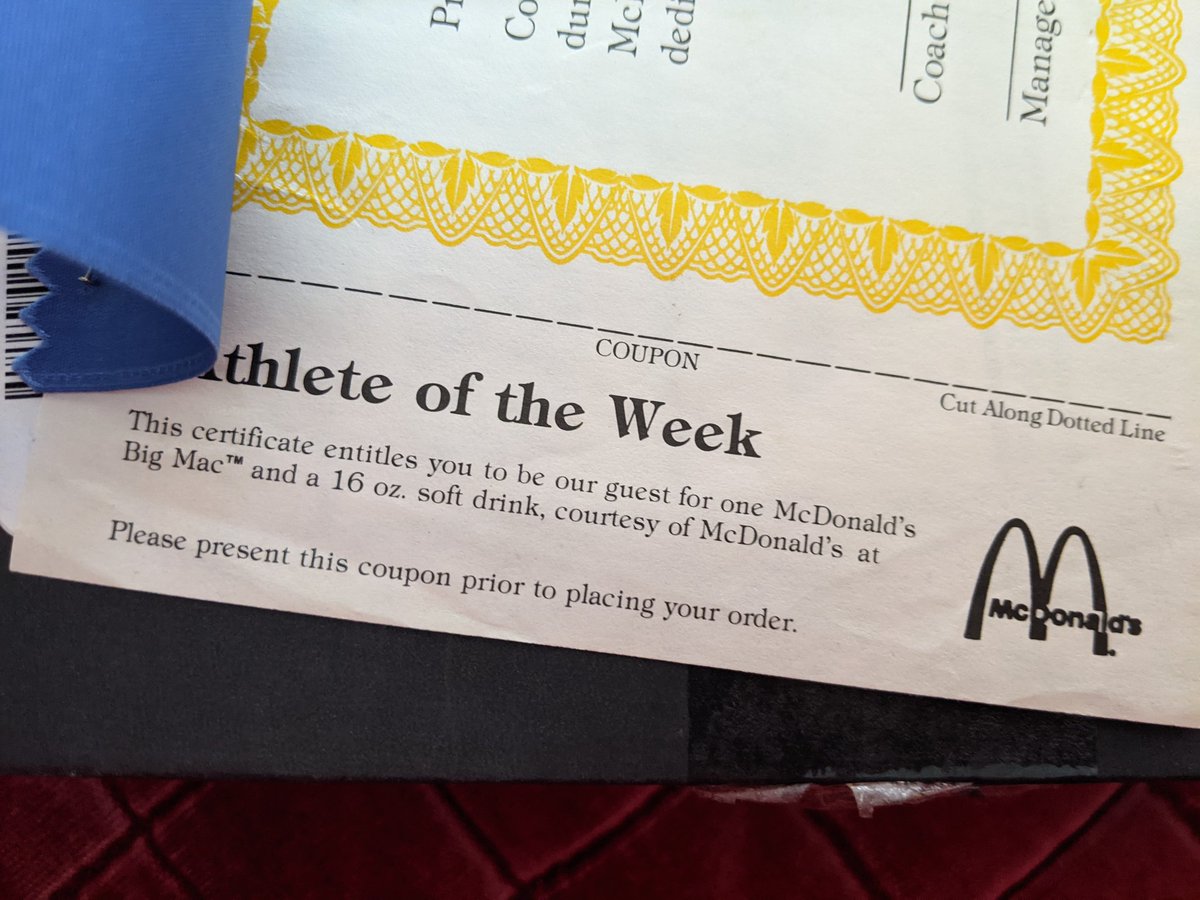 Coach
COUPON
Cut Along Dotted Line
Athlete of the Week
This certificate entitles you to be our guest for one McDonald's
Big Mac™ and a 16 oz. soft drink, courtesy of McDonald's at
Please present this coupon prior to placing your order.
McDonald's